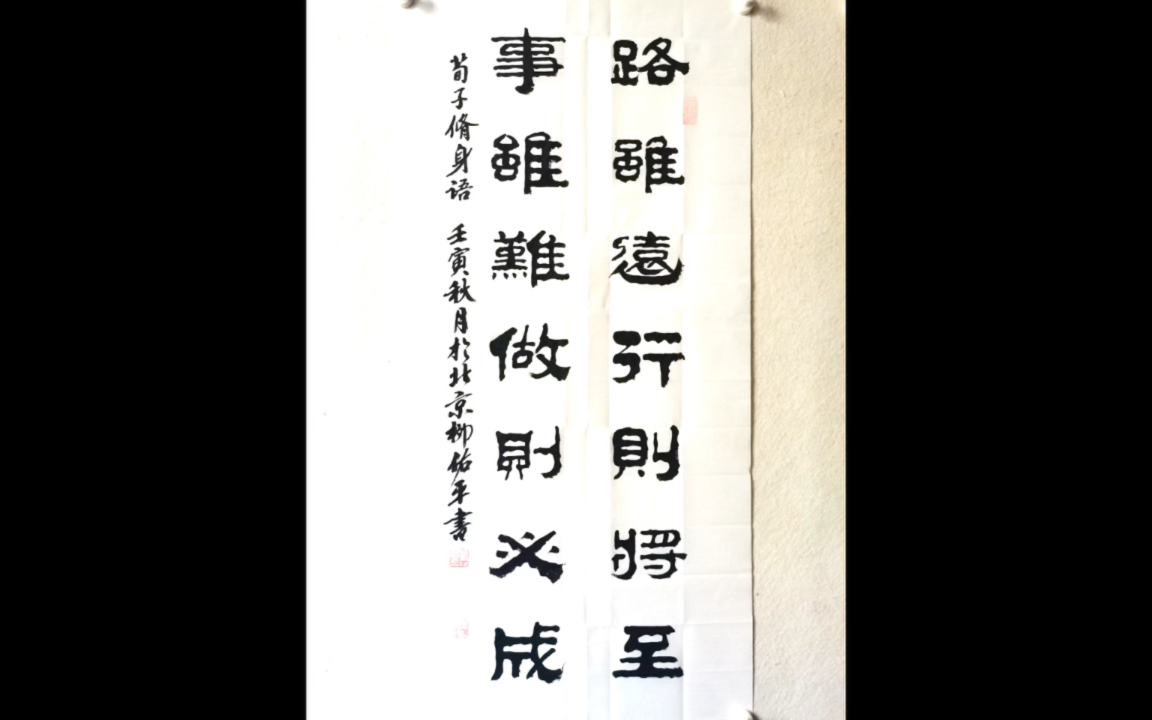 路雖遠行則將至
事雖難做則必成
荀子脩身语 壬寅秋月於北京柳佑平書